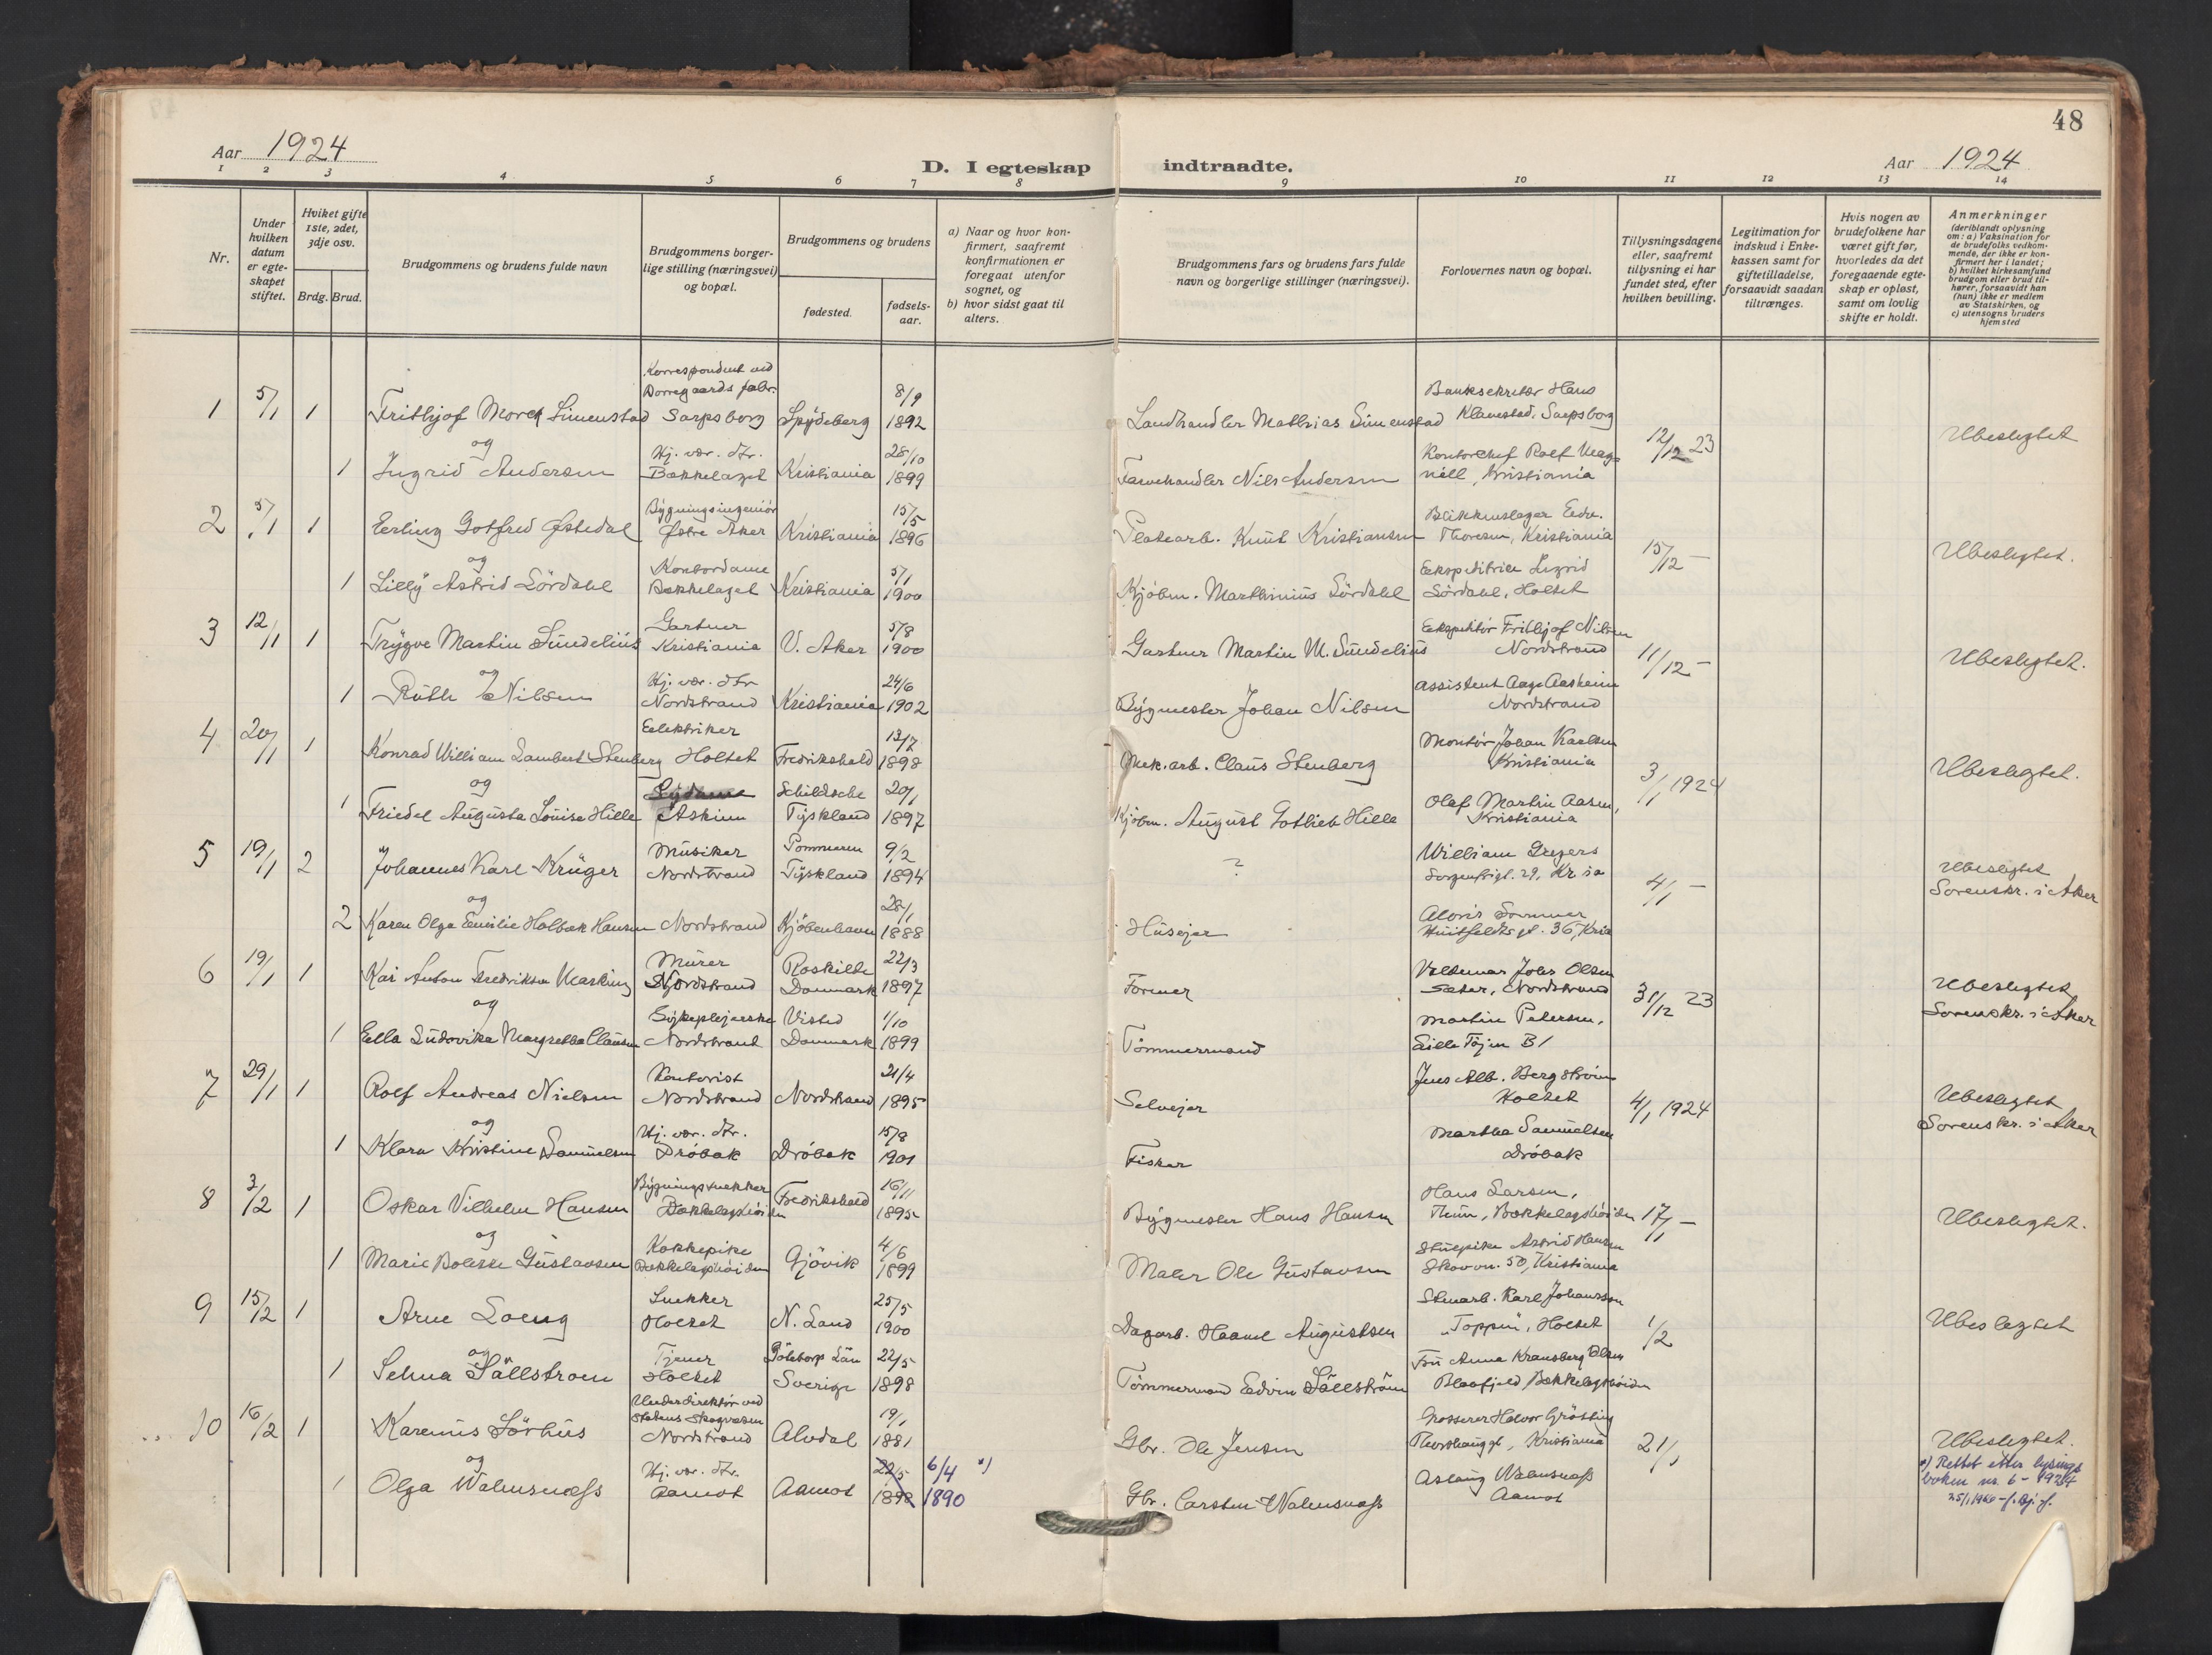 48
Aar 1924
D. I egteskap indtraadte.
Aar 1924
1 2 3 4 5 6 7 8 9 10 11 12 13 14
Nr.
Under hvilken datum er egteskapet stiftet.
Hviket gifte 1ste, 2det, 3dje osv.
Brdg. Brud.
Brudgommens og brudens fulde navn
Brudgommens borgerlige stilling (næringsvei) og bopæl.
Brudgommens og brudens
fødested.
fødselsaar.
a) Naar og hvor konfirmert, saafremt konfirmationen er foregaat utenfor sognet, og
b) hvor sidst gaat til alters.
Brudgommens fars og brudens fars fulde navn og borgerlige stillinger (næringsvei).
Forlovernes navn og bopæl.
Tillysningsdagene eller, saafremt tillysning ei har fundet sted, efter hvilken bevilling.
Legitimation for indskud i Enkekassen samt for giftetilladelse, forsaavidt saadan tiltrænges.
Hvis nogen av brudefolkene har været gift før, hvorledes da det foregaaende egteskap er opløst, samt om lovlig skifte er holdt.
Anmerkninger (deriblandt oplysning om: a) Vaksination for de brudefolks vedkommende, der ikke er konfirmert her i landet; b) hvilket kirkesamfund brudgom eller brud tilhører, forsaavidt han (hun) ikke er medlem av Statskirken, og c) utensogns bruders hjemsted
1 5/1 1 Frithjof Simenstad Korrespondent ved Borregaards fabr. Sarpsborg Spydeberg 8/9 1892 Landhandler Mathias Simenstad Banksekretær Hans Klavestad, Sarpsborg
og
1 Ingrid Andersen Hj. vær. dtr. Bekkelaget Kristiania 28/10 1899 Farvehandler Nils Andersen Kontorchef Rolf, Kristiania 12/12 23 Ubeslegtet
2 5/1 1 Erling Gotfred Østedal Bygningsingeniør Østre Aker Kristiania 15/5 1896 Platearb. Knut Kristiansen Blikkenslager Edv. Thoresen, Kristiania
og
1 Lilly Astrid Sørdahl Kontordame Bekkelaget Kristiania 5/1 1900 Kjøbm. Marthinius Sørdahl Ekspeditrice Sigrid Sørdahl, Holtet 15/12 – Ubeslegtet.
3 12/1 1 Trygve Martin Sundelius Gartner Kristiania V. Aker 5/8 1900 Gartner Martin M. Sundelius Ekspeditør Frithjof Nilsen Nordstrand
og
1 Ruth Nilsen Hj. vær. dtr Nordstrand Kristiania 24/6 1902 Bygmester Johan Nilsen assistent Aage Aasheim Nordstrand 11/12 – Ubeslegtet.
4 20/1 1 Konrad William Lambert Stenberg Elektriker Holtet Fredrikshald 13/7 1898 Mek. arb. Claus Stenberg Montør Johan Karlsen Kristiania
og
1 Friedel Augusta Louise Hille Askim Schildsche Tyskland 20/1 1897 Kjøbm. August Gotlieb Hille Olaf Martin Aasen, Kristiania 3/1 1924 Ubeslegtet.
5 19/1 2 Johannes Karl Krüger Musiker Nordstrand Pommern Tyskland 9/2 1894 ? William Gregers Sorgenfrigt. 29, Kr.ia
og
2 Karen Olga Emilie Holbæk Hansen Nordstrand Kjøbenhavn 28/1 1888 Husejer Alovis Sommer Huitfeldts gt. 36, Kria 4/1 – Ubeslegtet Sorenskr. i Aker
6 19/1 1 Kai Anton Fredriksen Murer Nordstrand Roskilde Danmark 22/3 1897 Former Valdemar Johs Olsen Sæter, Nordstrand
og
1 Ella Ludovika Margretha Clausen Sykeplejerske Nordstrand Visted Danmark 1/10 1899 Tømmermand Martin Petersen, Lille Tøjen B 1 31/12 23 Ubeslegtet Sorenskr. i Aker
7 29/1 1 Rolf Andreas Nielsen Kontorist Nordstrand Nordstrand 21/4 1895 Selvejer Jens Alb. Bergstrøm Holtet
og
1 Klara Kristine Samuelsen Hj. vær. dtr. Drøbak Drøbak 15/8 1901 Fisker Martha Samuelsen Drøbak 4/1 1924 Ubeslegtet Sorenskr. i Aker
8 3/2 1 Oskar Vilhelm Hansen Bygningssnekker Bekkelagshøiden Fredrikshald 16/11 1895 Bygmester Hans Hansen Hans Larsen, Bekkelagshøiden
og
1 Marie Bolette Gustavsen Kokkepike Bekkelagshøiden Gjøvik 4/6 1899 Maler Ole Gustavsen Stuepike Astrid Hansen Skovvn. 50, Kristiania 17/1 – Ubeslegtet.
9 15/2 1 Arne Loeng Snekker Holtet N. Land 25/5 1900 Dagarb. Haavel Augustsen Stenarb. Karl Johansson "Toppen", Holtet
og
1 Selma Sällstrom Tjener Holtet Göteborgs Län Sverige 22/5 1898 Tømmermand Edvin Sällström Fru Anna Kransberg Olsen Blaafjeld, Bekkelagshøiden 1/2 Ubeslegtet
10 16/2 1 Karenus Sørhus Underdirektør ved Statens Skogvæsen Nordstrand Alvdal 19/1 1881 Gbr. Ole Jensen Grosserer Halvor Grøtting, Kristiania
og
1 Olga Walmsnæss Hj. vær. dtr. Aamot Aamot 22/5 1898 6/4 1890 *) Gbr. Carsten Walmsnæss Aslaug Walmsnæss Aamot 21/1 Ubeslegtet.
*) Rettet etter lysningsboken nr. 6 - 1924